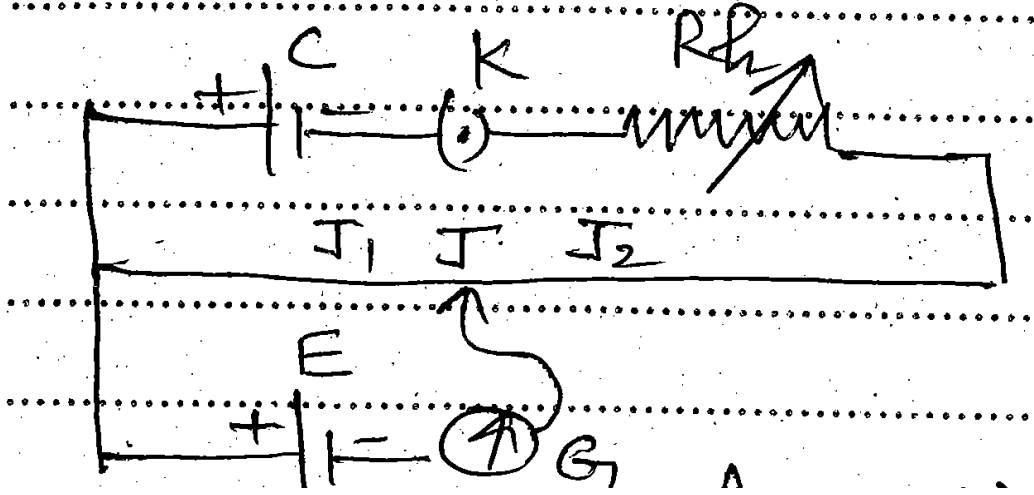 C K Rh
+ −
J₁ J J₂
E
+ − G